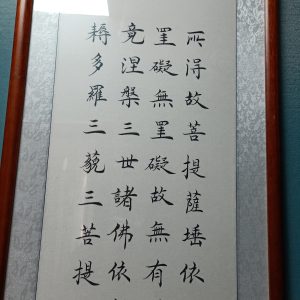 所得故菩提薩埵依
罣礙無罣礙故無有
竟涅槃三世諸佛依
耨多羅三藐三菩提